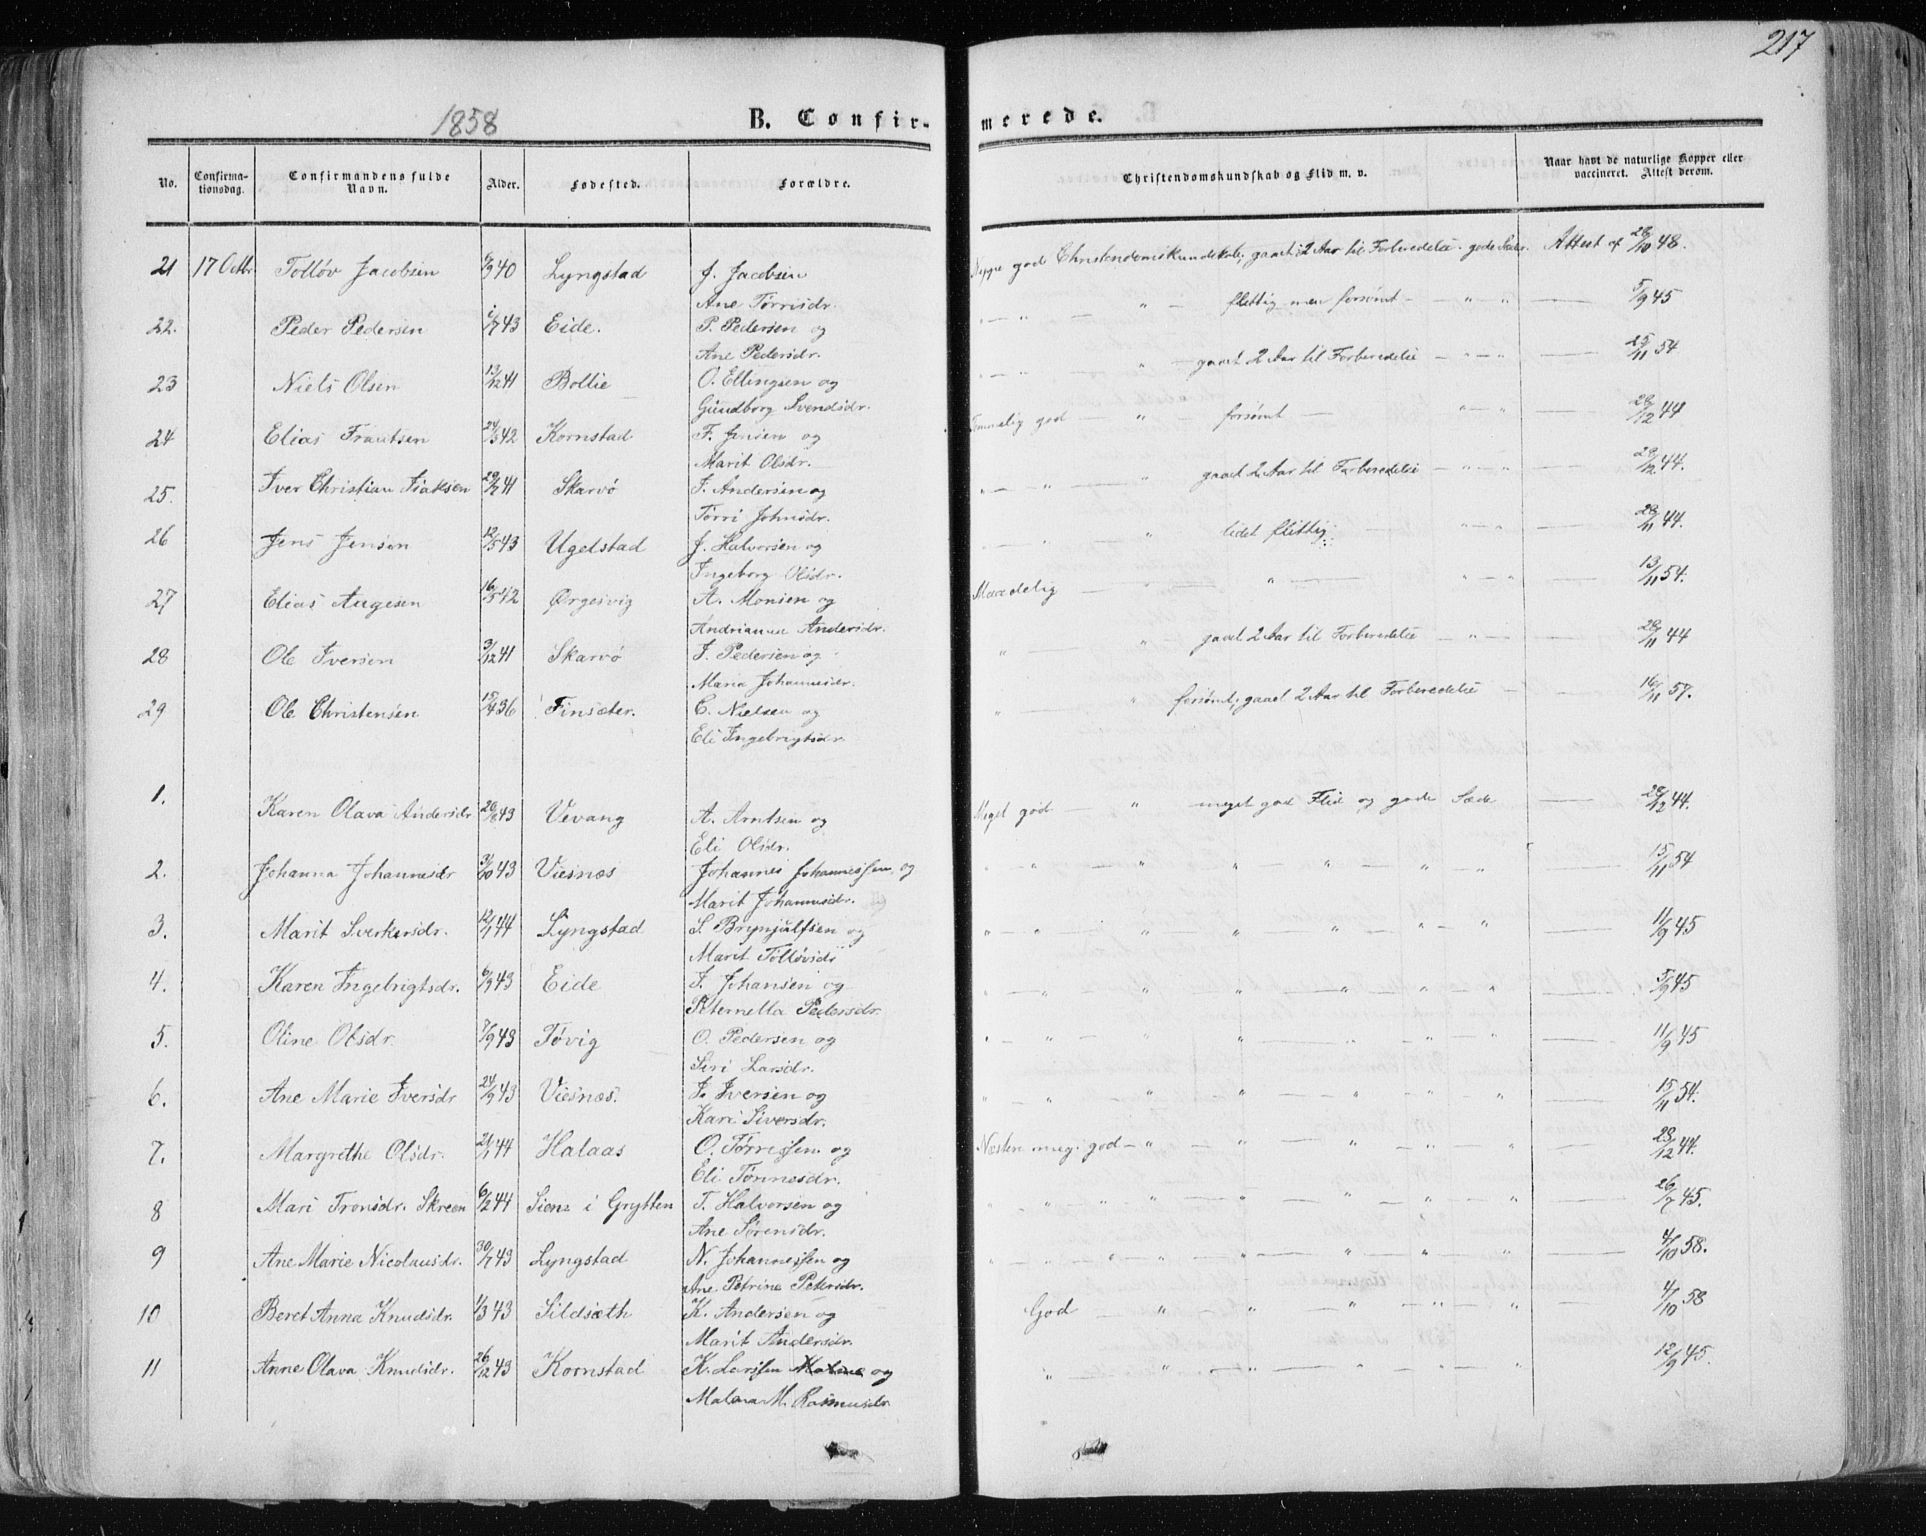 217
1858
B. Confir-
merede.
No.
Confirma-
tionsdag.
Confirmandens fulde
Navn.
Alder.
Fødested.
Forældre.
Christendomskundskab og Flid m. v.
Naar havt de naturlige Kopper eller
vaccineret. Attest derom.
21 17 Octbr. Tolløv Jacobsen 40 Lyngstad J. Jacobsen god Christendomskundskab; gaaet 2 Aar til Forberedelse. gode Attest af 28/10 48.
Ane Tørrisdr.
22. Peder Pedersen 43 Eide. P. Pedersen og " — " — " — flittig men forsømt — " — " — 5/9 45
Ane Pedersdr.
23 Niels Olsen 13/12 41 Bollie O. Ellingsen og " — " — " — gaaet 2 Aar til Forberedelse — " — " — 25/11 54
Gundborg Svendsdr.
24 Elias Frantsen 24/5 42 Kornstad F. Jensen og Temmelig god — " — forsømt — " — " — 28/12 44
Marit Olsdr.
25. Iver Christian Isaksen 29/7 41 Skarvø I. Andersen og " — " — " gaaet 2 Aar til Forberedelse — " — " — 28/12 44.
Tørri Johnsdr.
26 Jens Jensen 12/5 43 Ugelstad J. Halvorsen og " — " — " lidet flittig. — " — " — 28/11 44.
Ingeborg Olsdr.
27 Elias Augesen 16/5 42 Ørgesvig A. Monsen og Maadelig — " — " — " — " — 13/11 54.
Andrianna Andersdr.
28 Ole Iversen 3/12 41 Skarvø I. Pedersen og " — " gaaet 2 Aar til Forberedelse — " — 28/11 44
Maria Johannesdr.
29 Ole Christensen 15/4 36 Finsæter. C. Nielsen og " — " forsømt; gaaet 2 Aar til Forberedelse — " — 16/11 57.
Eli Ingebrigtsdr.
1. Karen Olava Andersdr 20/8 43 Vevang A. Arntsen og Meget god — " meget god Flid og gode Sæde — 28/12 44.
Eli Olsdr.
2. Johanna Johannesdr 31/10 43 Viesnæs Johannes Johannessen og " — " — " — " — " — " — " — 15/11 54
Marit Johannesdr.
3. Marit Sverkersdr. 12/1 44 Lyngstad S. Brynjulfsen og " — " — " — " — " — " — " — 11/9 45
Marit Tolløvsdr
4. Karen Ingebrigtsdr. 6/9 43 Eide I. Johansen og " — " — " — " — " — " — " — 5/9 45
Peternella Pedersdr.
5. Oline Olsdr. 7/9 43 Tøvig O. Pedersen og " — " — " — " — " — " — " — 11/9 45
Siri Larsdr.
6. Ane Marie Iversdr 24/9 43 Viesnæs. I. Iversen og " — " — " — " — " — " — " — 15/11 54.
Kari Siversdr.
7. Margrethe Olsdr. 21/1 44 Halaas O. Tørressen og Næsten meg. god — " — " — " — " — " — 28/12 44.
Eli Tønnesdr.
8 Mari Tronsdr. Skreen 6/2 44 i Grytten T. Halvorsen og " — " — " — " — " — " — " — 26/7 45.
Ane Sørensdr.
9 Ane Marie Nicolausdr. 30/7 43 Lyngstad N. Johannessen og " — " — " — " — " — " — " — 4/10 58.
Ane Petrine Petersdr.
10 Beret Anna Knudsdr. 1/3 43 Sildsæth K. Andersen og God — " — " — " — " — " — 4/10 58
Marit Andersdr.
11 Anne Olava Knudsdr. 26/12 43 Kornstad K. Larssen og " — " — " — " — " — " — 12/9 45.
M. Rasmusdr